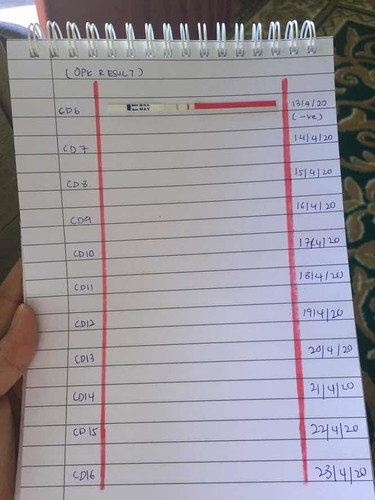 (OPK RESULT)
CD6 13/4/20
(-ve)
CD7 14/4/20
CD8 15/4/20
CD9 16/4/20
CD10 17/4/20
CD11 18/4/20
CD12 19/4/20
CD13 20/4/20
CD14 21/4/20
CD15 22/4/20
CD16 23/4/20